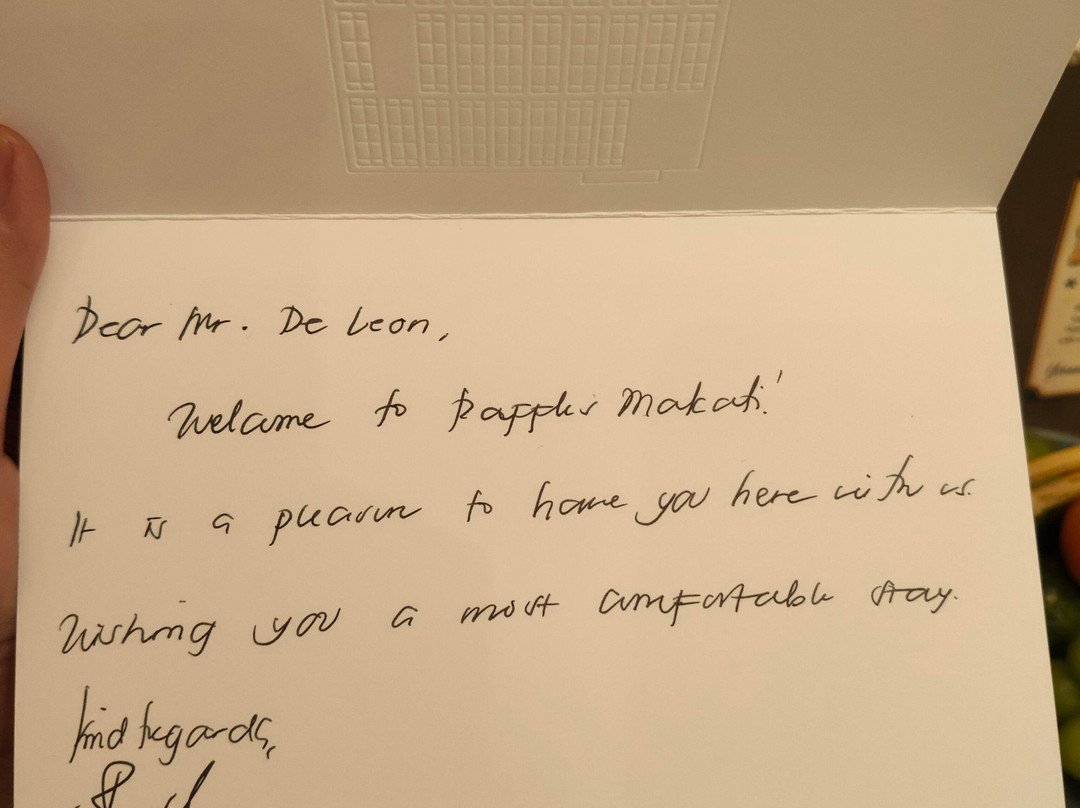 Dear Mr. De Leon,
Welcome to Raffles Makati!
It is a pleasure to have you here with us.
Wishing you a most comfortable stay.
Kind regards,